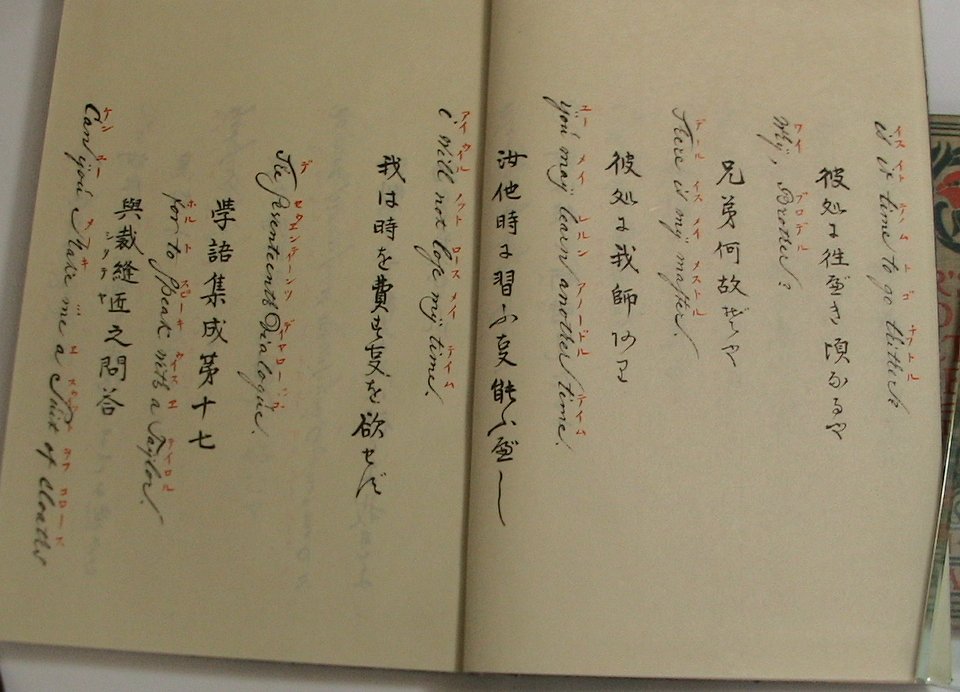 イス イト テイム ト ゴ
is it time to go thither
彼処に往べき頃なるや
ワイ ブロデル
Why, Brother?
兄弟何故ぞや
デール イス メイ メストル
There is my master.
彼処に我師あり
ユー メイ レルン アノーデル テイム
you may learn another time.
汝他時に習ふ事能ふべし
アイ ウイル ノット ロース メイ テイム
i will not lose my time.
我は時を費す事を欲せず
デ セウエンテイーンツ
The Seventeenth Dialogue.
学語集成第十七
ホル ト スピーキ ウイス エ テイロル
for to Speak with a Taylor.
與裁縫匠之問答
シタテヤ
ケン ユー メーキ ミー エ
Can you Make me a Shit of cloaths